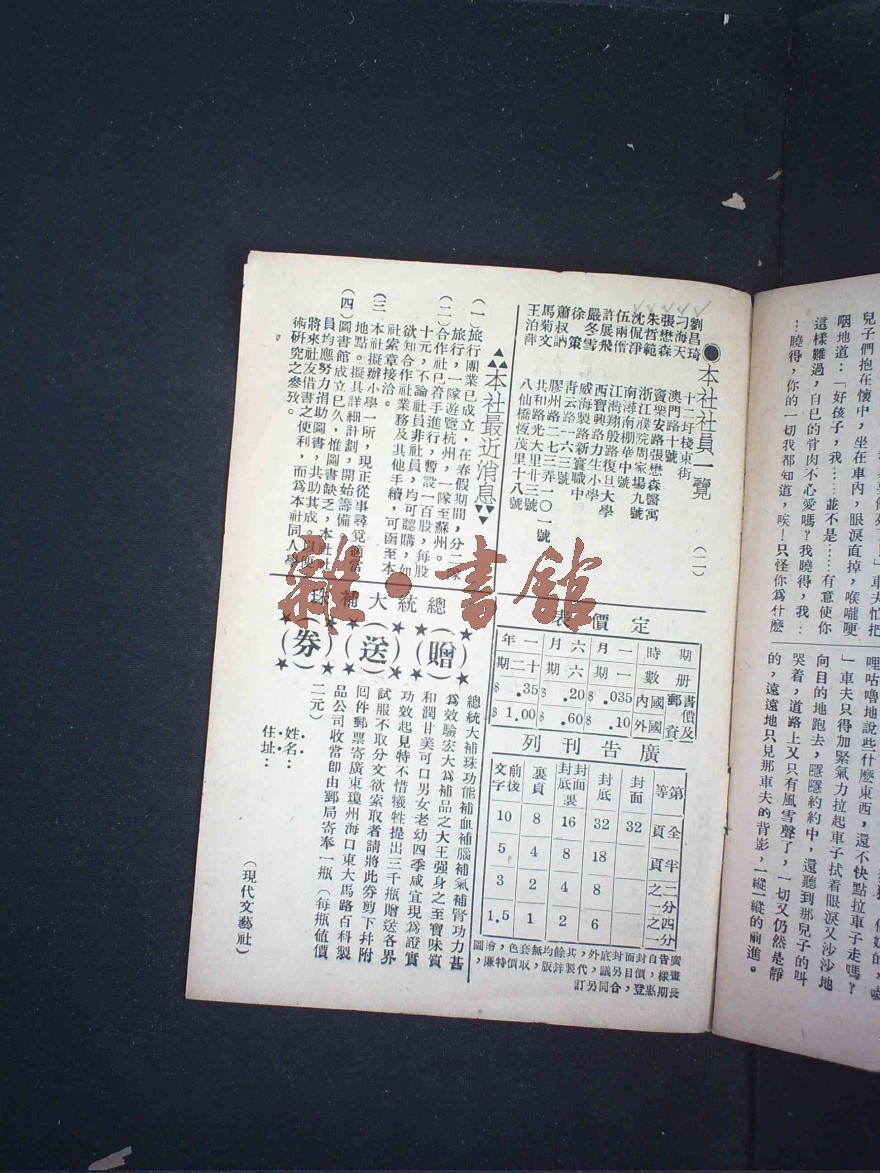 兒子們抱在懷中，坐在車內，眼淚直掉，喉嚨哽
咽地道：「好孩子，我……並不是……有意使你
這樣難過，自己的骨肉不心愛嗎？我曉得，我…
…曉得，你的一切我都知道，唉！只怪你爲什麽
哩咕嚕地說些什麽東西，還不快點拉車子走嗎？
」車夫只得加緊氣力拉起車子拭着眼淚又沙沙地
向目的地跑去，隱隱約約中，還聽到那兒子的叫
哭着，道路上又只有風雪聲了，一切又仍然是靜
的，遠遠地只見那車夫的背影，一縱一縱的前進。
●本社社員一覽 （二）
劉昌琦 十二圩棧東街
刁海天 澳門路十號
張懋森 竇樂安路張懋森醫寓
朱哲範 浙江濮院周家場九號
沈侃淨 南潯南柵華中號
伍兩僧 江灣翔殷路復旦大學
許展飛 西寶興路力生小學
嚴冬雪 威海製路新寰職中
徐策 青云路一六三號
蕭叔訥 膠州路二七三弄一〇一號
馬菊文 共和路光大里廿三號
王泊萍 八仙橋恆茂里十八號
▲▲▲本社最近消息▼▼▼
（一）旅行團業已成立，在春假期間，分二隊
旅行，一隊遊覽杭州，一隊至蘇州。
（二）合作社已着手進行，暫設一百股，每股
十元，不論社員非社員，均可認購，如
欲知合作社業務及其他手續，可函至本
社索章接洽。
（三）本社擬辦小學一所，現正從事尋覓適當
地點。擬具詳細計劃，開始籌備
（四）圖書館成立已久，惟圖書缺乏，本社社
員均應努力捐助圖書，共助其成。以便
將來社友借書之便利，而爲本社同人學
術研究之參攷。
定價表
期 冊 書價及郵資
時 數 國內 國外
一月 一 $.035 $.10
六月 六期 $.20 $.60
一年 十二期 $.35 $1.00
廣告刊列
等第 全頁 半頁 二分之一 四分之一
封面 32
封底 32 18 8 6
封面封底裏 16 8 4 2
裏頁 8 4 2 1
前後文字 10 5 3 1.5
廣告自封面封底外，其餘均無套色，繪圖
畫樣，價目另議，代製鋅版，取價特廉，
長期惠登，合同另訂
總統大補珠
（贈）（送）（券）
總統大補珠功能補血補腦補氣補腎功力甚
爲效驗宏大爲補品之大王强身之至寶味質
和潤甘美可口男女老幼四季咸宜現爲證實
功效起見特不惜犧牲提出三千瓶贈送各界
試服不取分文欲索取者請將此券剪下幷附
囘件郵票寄廣東瓊州海口東大馬路百科製
品公司收當卽由郵局寄奉一瓶（每瓶值價
二元）
姓名：
住址：
（現代文藝社）
雜·書館